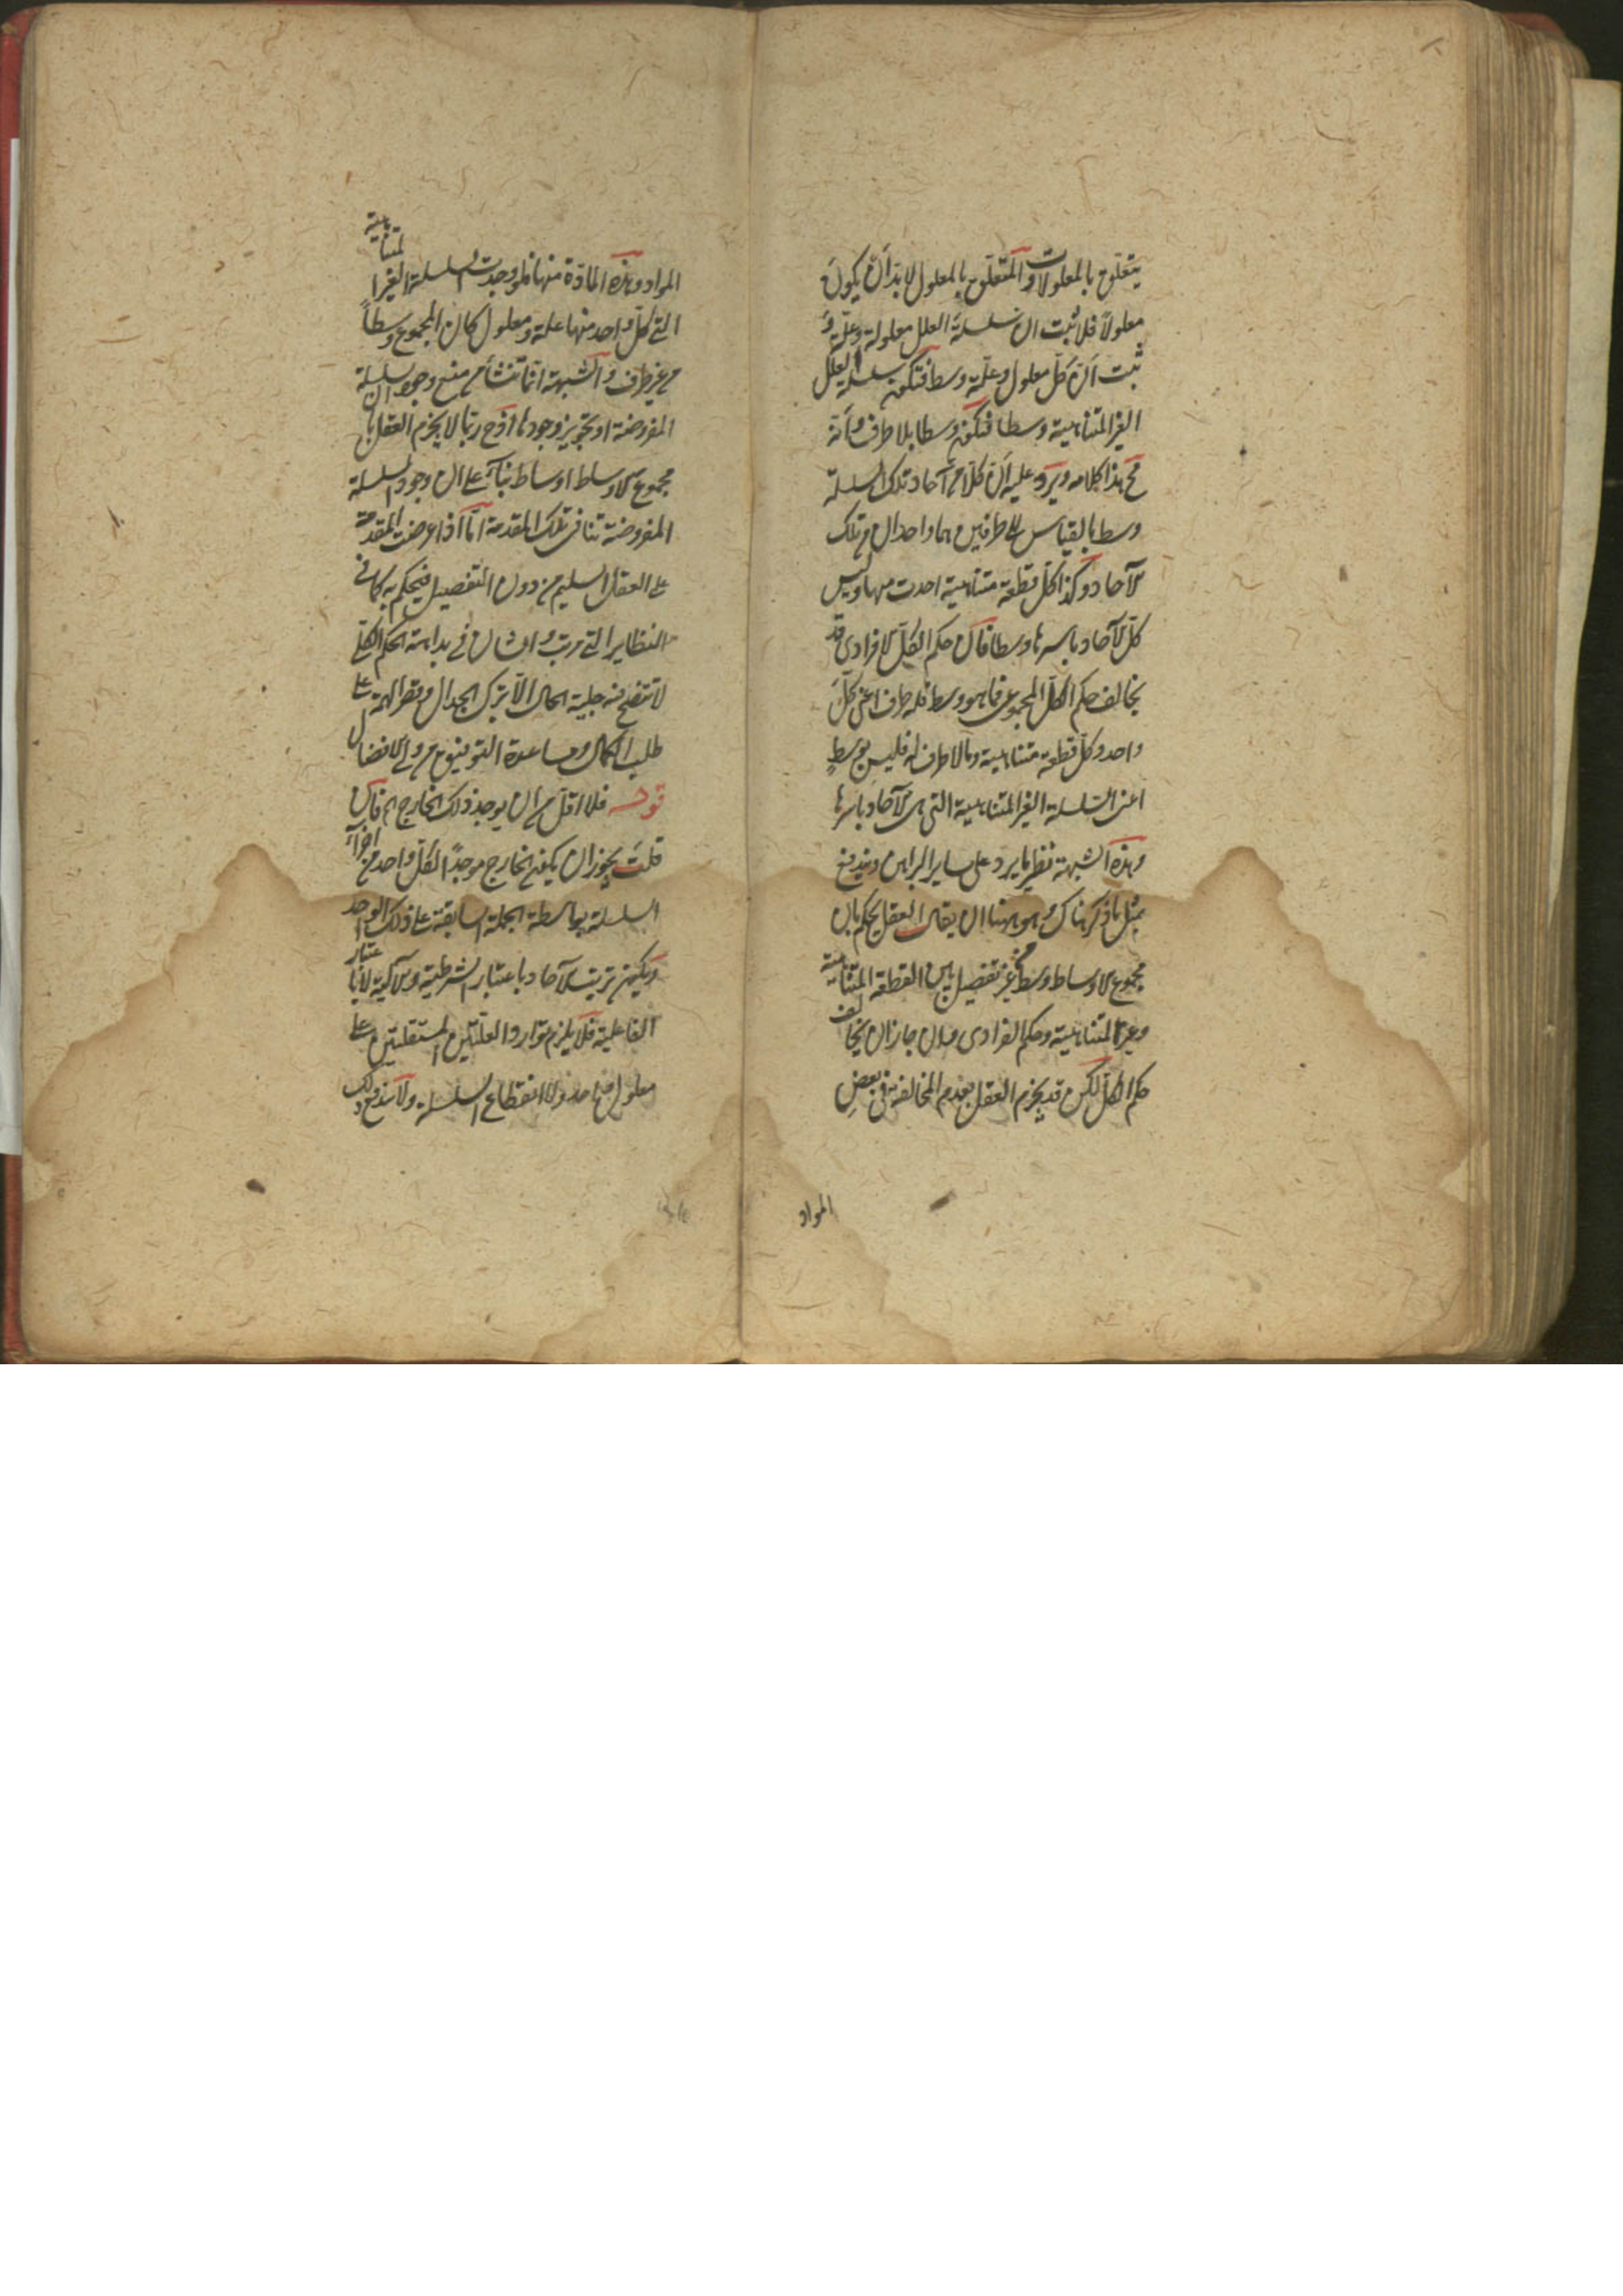 يتعلق بالمعلولات والمتعلق بالمعلول لابد ان يكون
معلولا فلا ثبت ان سلسلة العلل معلولة وعلة و
ثبت ان كل معلول وعلة وسط فتكون سلسلة العلل
الغير المتناهية وسطا فتكون وسطا بلا طرف وانه
مح هذا كلامه ويرد عليه ان كلا من آحاد تلك السلسلة
وسط بالقياس الى طرفين هما واحدان من تلك
الآحاد وكذا كل قطعة متناهية احدت منها وليس
كل الآحاد باسرها وسطا فان حكم الكل الافرادى قد
يخالف حكم الكل المجموعى فما هو وسط فله طرف اعنى كل
واحد وكل قطعة متناهية وما لا طرف له فليس بوسط
اعنى السلسلة الغير المتناهية التى هى الآحاد باسرها
وهذه الشبهة نظير ما يرد على ساير البراهين ويندفع
بمثل ما ذكر هناك وهو ههنا ان يقال العقل يحكم بان
مجموع الاوساط وسط من غير تفصيل بين القطعة المتناهية
وغير المتناهية وحكم الفرادى وان جاز ان يخالف
حكم الكل لكن قد يجزم العقل بعدم المخالفة فى بعض
المواد
المواد وهذه المادة منها فلو وجدت السلسلة الغير المتناهية
التى كل واحد منها علة ومعلول كان المجموع وسطا
من غير طرف والشبهة انما تنشأ من منع وجود السلسلة
المفروضة او تجويز وجودها اذ ح ربما لا يجزم العقل بان
مجموع الاوساط اوساط بناء على ان وجود السلسلة
المفروضة تنافى تلك المقدمة اما اذا عرضت المقدمة
على العقل السليم من دون التفصيل فيحكم به كما فى
النظاير التى مرت وامثال فى بداهة الحكم الكلى
لا تتضح منه جلية الحال الا بترك الجدال وقصر الهمة على
طلب الكمال ومساعدة التوفيق من ولى الافضال
قوله فلا اقل من ان يوجد ذلك الخارج اه فان
قلت يجوز ان يكون الخارج موجدا لكل واحد من اجزاء
السلسلة بواسطة الجملة السابقة على ذلك الواحد
ويكون ترتيب الآحاد باعتبار الشرطية والآلية لا باعتبار
الفاعلية فلا يلزم توارد العلتين المستقلتين على
معلول واحد ولا انقطاع السلسلة ولا يندفع ذلك